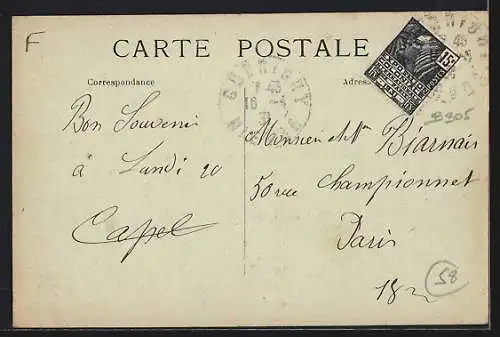 F
CARTE POSTALE
Correspondance
Bon Souvenir
à Lundi 20
Capel
Monsieur et Mme Biarnais
50 rue Championnet
Paris
18e
15c
B305
58